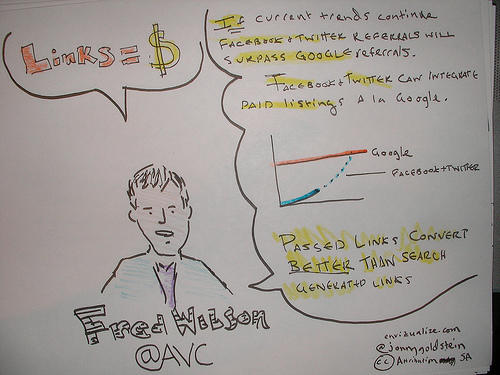 Links = $
If current trends continue
Facebook + Twitter referrals will
surpass Google referrals.
Facebook + Twitter can integrate
paid listings a la Google.
Google
Facebook + Twitter
Passed links convert
better than search
generated links
Fred Wilson
@AVC
envizualize.com
@jonnygoldstein
cc Attribution SA